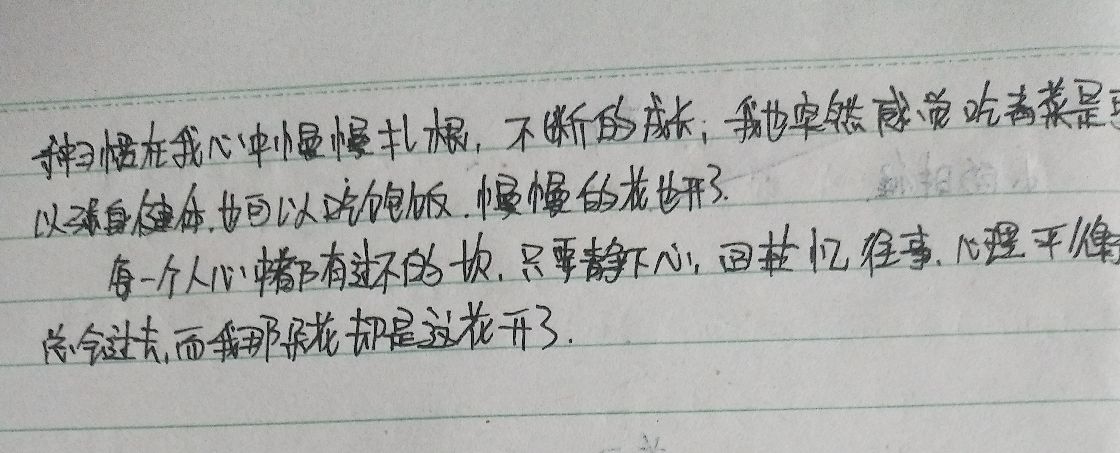 种习惯在我心中慢慢扎根,不断的成长,我也突然感觉吃青菜是可
以强身健体,也可以吃饱饭.慢慢的花也开了.
每一个人心中都有过不的坎,只要静下心,回忆往事,心理平衡
总会过去,而我那朵花却是这花开了.